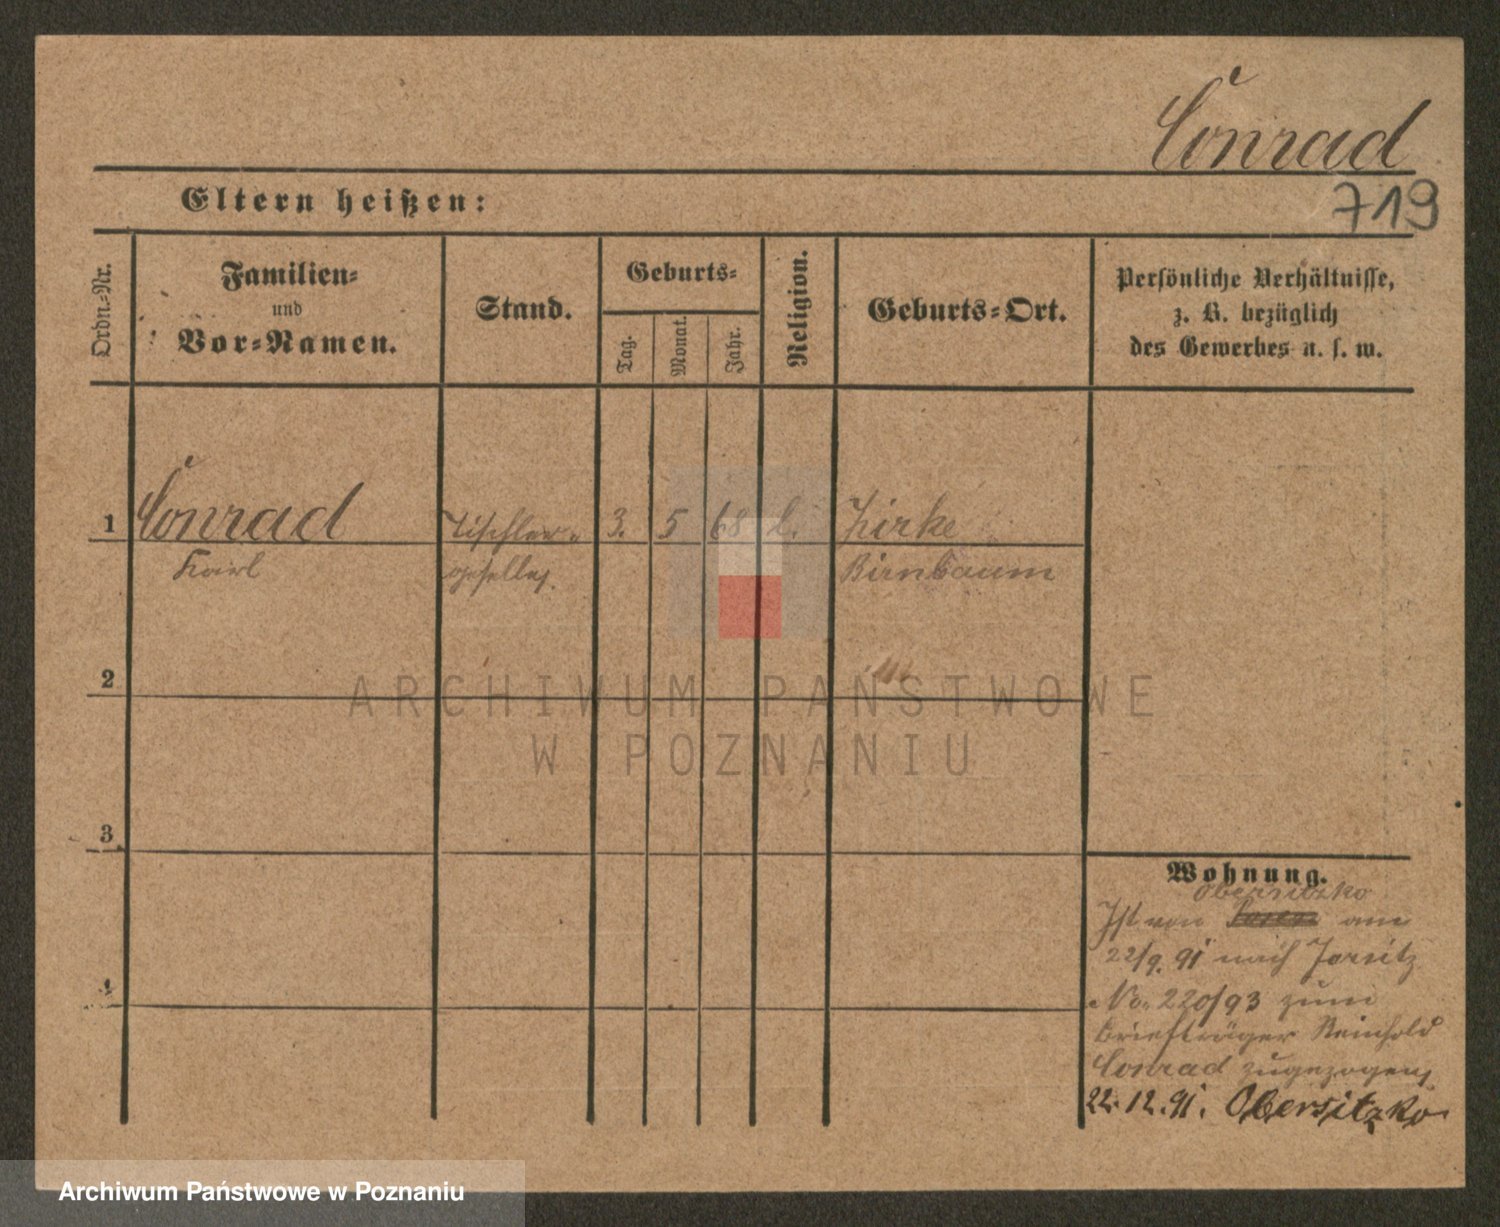 Conrad
719
Eltern heißen:
Ordn.-Nr.
Familien-
und
Vor-Namen.
Stand.
Geburts-
Tag.
Monat.
Jahr.
Religion.
Geburts-Ort.
Persönliche Verhältnisse,
z. B. bezüglich
des Gewerbes u. s. w.
1 Conrad Tischler- 3. 5 68 l. Zirke
Karl geselle Birnbaum
2
ARCHIWUM PAŃSTWOWE
W POZNANIU
3
Wohnung.
Obersitzko
Ist von Posen am
22/9. 91 nach Jersitz
No. 220/93 zum
Briefträger Reinhold
Conrad zugezogen
4
22.12.91. Obersitzko
Archiwum Państwowe w Poznaniu